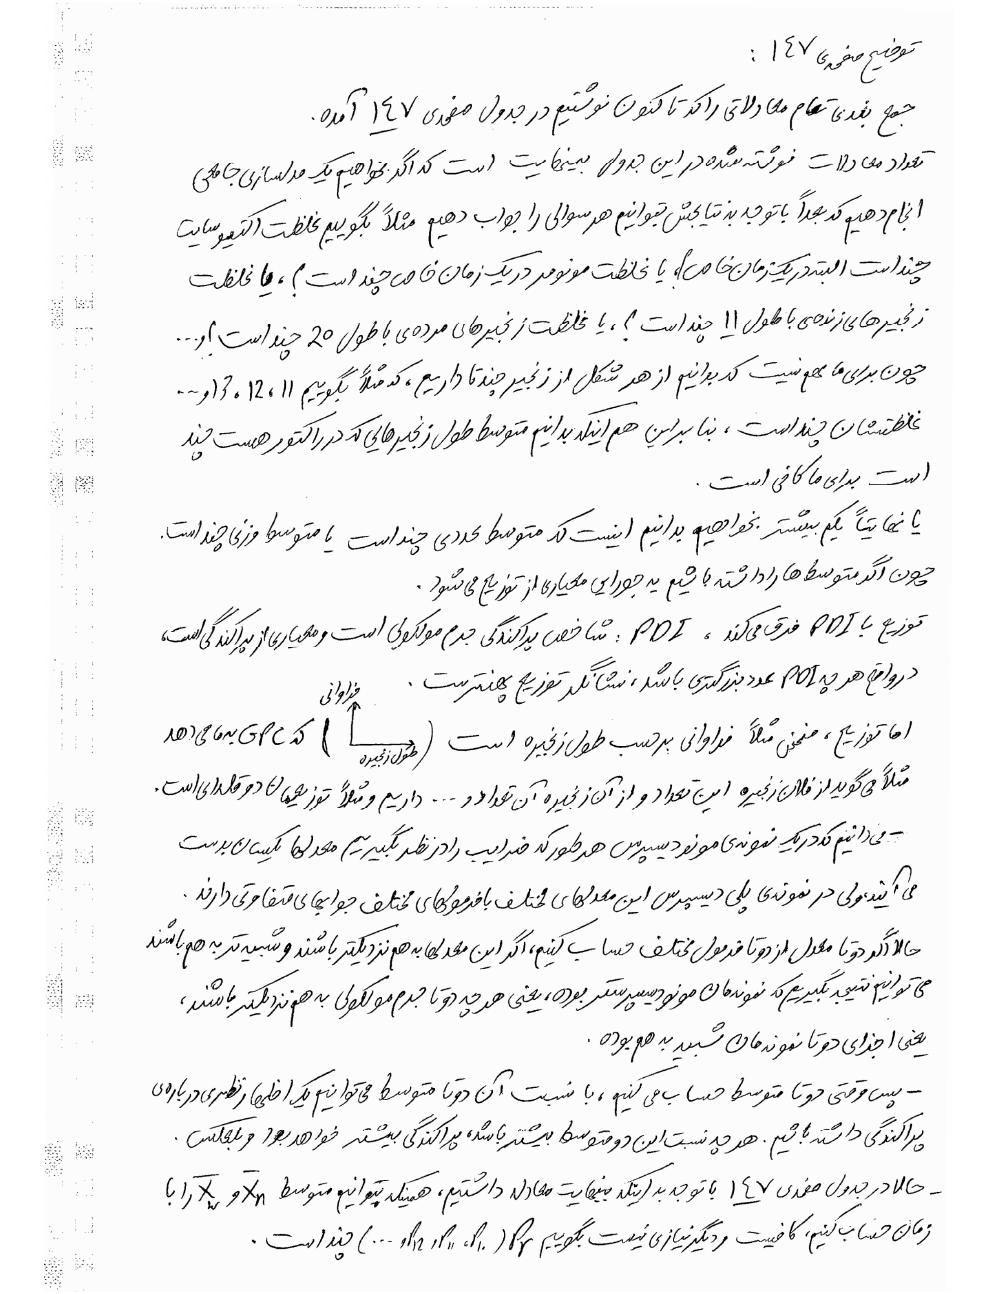 توضیح صفحه‌ی ۱٤۷ :
جمع بندی تمام معادلاتی را که تا کنون نوشتیم در جدول صفحه‌ی ۱٤۷ آمده.
تعداد معادلات نوشته شده در این جدول بینهایت است که اگر بخواهیم یک مدلسازی جامعی
انجام دهیم که بعداً با توجه به نتایجش بتوانیم هر سوالی را جواب دهیم مثلاً بگوییم غلظت اکتیو سایت
چند است البته در یک زمان خاص؟، یا غلظت مونومر در یک زمان خاص چند است؟، یا غلظت
زنجیرهای زنده‌ی با طول 11 چند است؟، یا غلظت زنجیرهای مرده‌ی با طول 20 چند است؟ و...
چون برای ما مهم نیست که بدانیم از هر شکل از زنجیر چند تا داریم، که مثلاً بگوییم 11، 12، 13 و ...
غلظتشان چند است، بنابراین هم اینکه بدانیم متوسط طول زنجیرهایی که در راکتور هست چند
است برای ما کافی است.
یا نهایتاً یکم بیشتر بخواهیم بدانیم اینست که متوسط عددی چند است یا متوسط وزنی چند است.
چون اگر متوسط ها را داشته باشیم یه جورایی معیاری از توزیع می شود.
توزیع با PDI فرق می‌کند، PDI : شاخص پراکندگی جرم مولکولی است و معیاری از پراکندگی است،
در واقع هر چه PDI عدد بزرگتری باشد، نشانگر توزیع پهنتر است.
فراوانی
اما توزیع، منحنی مثلاً فراوانی برحسب طول زنجیره است ( ) که GPC به ما می دهد
طول زنجیره
مثلاً می گوید از فلان زنجیره این تعداد و از آن زنجیره آن تعداد و ... داریم و مثلاً توزیعمان دو قله‌ای است.
- می دانیم که در یک نمونه‌ی مونودیسپرس هر طور که ضرایب را در نظر بگیریم معدلها یکسان بدست
می آیند، ولی در نمونه‌ی پلی دیسپرس این معدلهای مختلف با فرمولهای مختلف جوابهای متفاوتی دارند.
حالا اگر دو تا معدل از دو تا فرمول مختلف حساب کنیم، اگر این معدلها به هم نزدیکتر باشند و شبیه تر به هم باشند
می توانیم نتیجه بگیریم که نمونه‌مان مونودیسپرس‌تر بوده، یعنی هر چه دو تا جرم مولکولی به هم نزدیکتر باشند،
یعنی اجزای دو تا نمونه‌مان شبیه به هم بوده.
- پس وقتی دو تا متوسط حساب می کنیم، با نسبت آن دو تا متوسط می توانیم یک اظهار نظری درباره‌ی
پراکندگی داشته باشیم. هر چه نسبت این دو متوسط بیشتر باشد، پراکندگی بیشتر خواهد بود و بالعکس.
- حالا در جدول صفحه‌ی ۱٤۷ با توجه به اینکه بینهایت معادله داشتیم، همینکه بتوانیم متوسط X̄n و X̄w را با
زمان حساب کنیم، کافیست و دیگر نیازی نیست بگوییم Pr (P10، P11، P12 و ...) چند است.